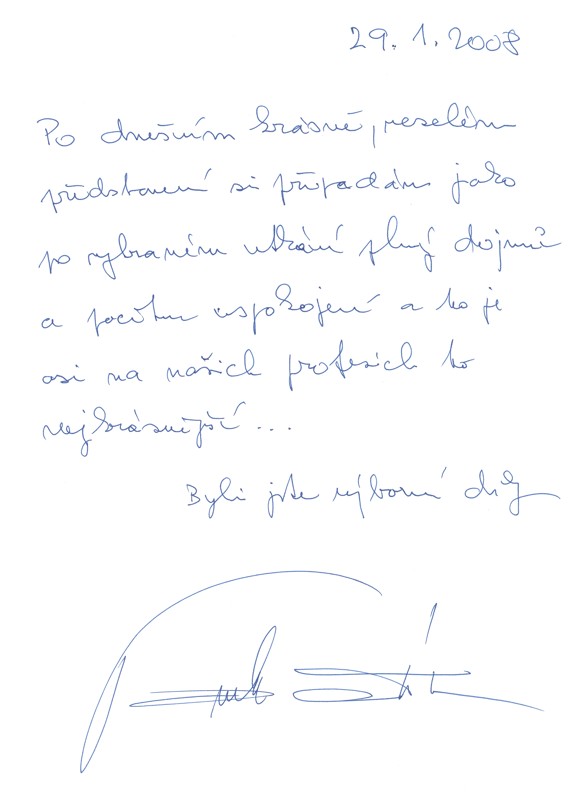 29. 1. 2008
Po dnešním krásně, veselém
představení si připadám jako
po vyhraném utkání plný dojmů
a pocitu uspokojení a to je
asi na našich profesích to
nejkrásnější...
Byli jste výborní díky